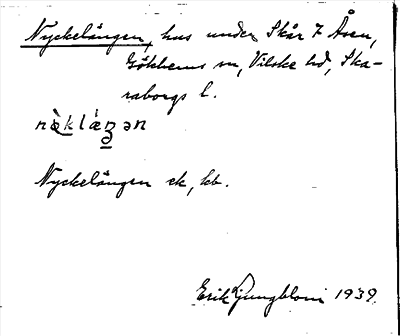 Nyckelängen, hus under Skår 7 Åsen,
Gökhems sn, Vilske hd, Ska-
raborgs l.
Nyckelängen ek, kb.
Erik Ljungblom 1939.